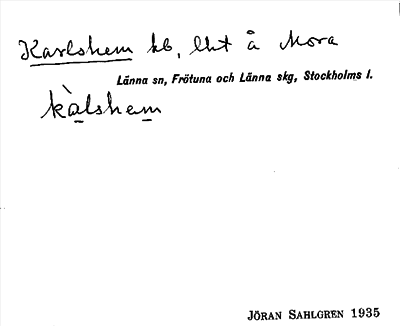 Karlshem hb, lht å Mora
Länna sn, Frötuna och Länna skg, Stockholms l.
kàlshem
JÖRAN SAHLGREN 1935